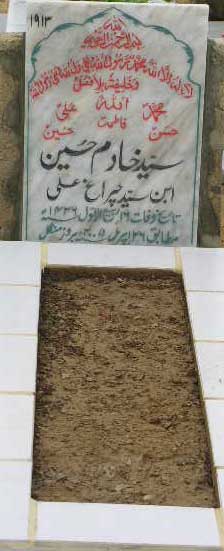 ۱۹۱۳
اللہ
بسم اللہ الرحمن الرحیم
لا الہ الا اللہ محمد رسول اللہ علی ولی اللہ
وخلیفتہ بلا فصل
محمد اللہ علی
فاطمہ
حسن حسین
سید خادم حسین
ابن سید چراغ علی
تاریخ وفات ۲۶ ربیع الاول ۱۴۲۶ھ
مطابق ۲۶ اپریل ۲۰۰۵ء بروز منگل